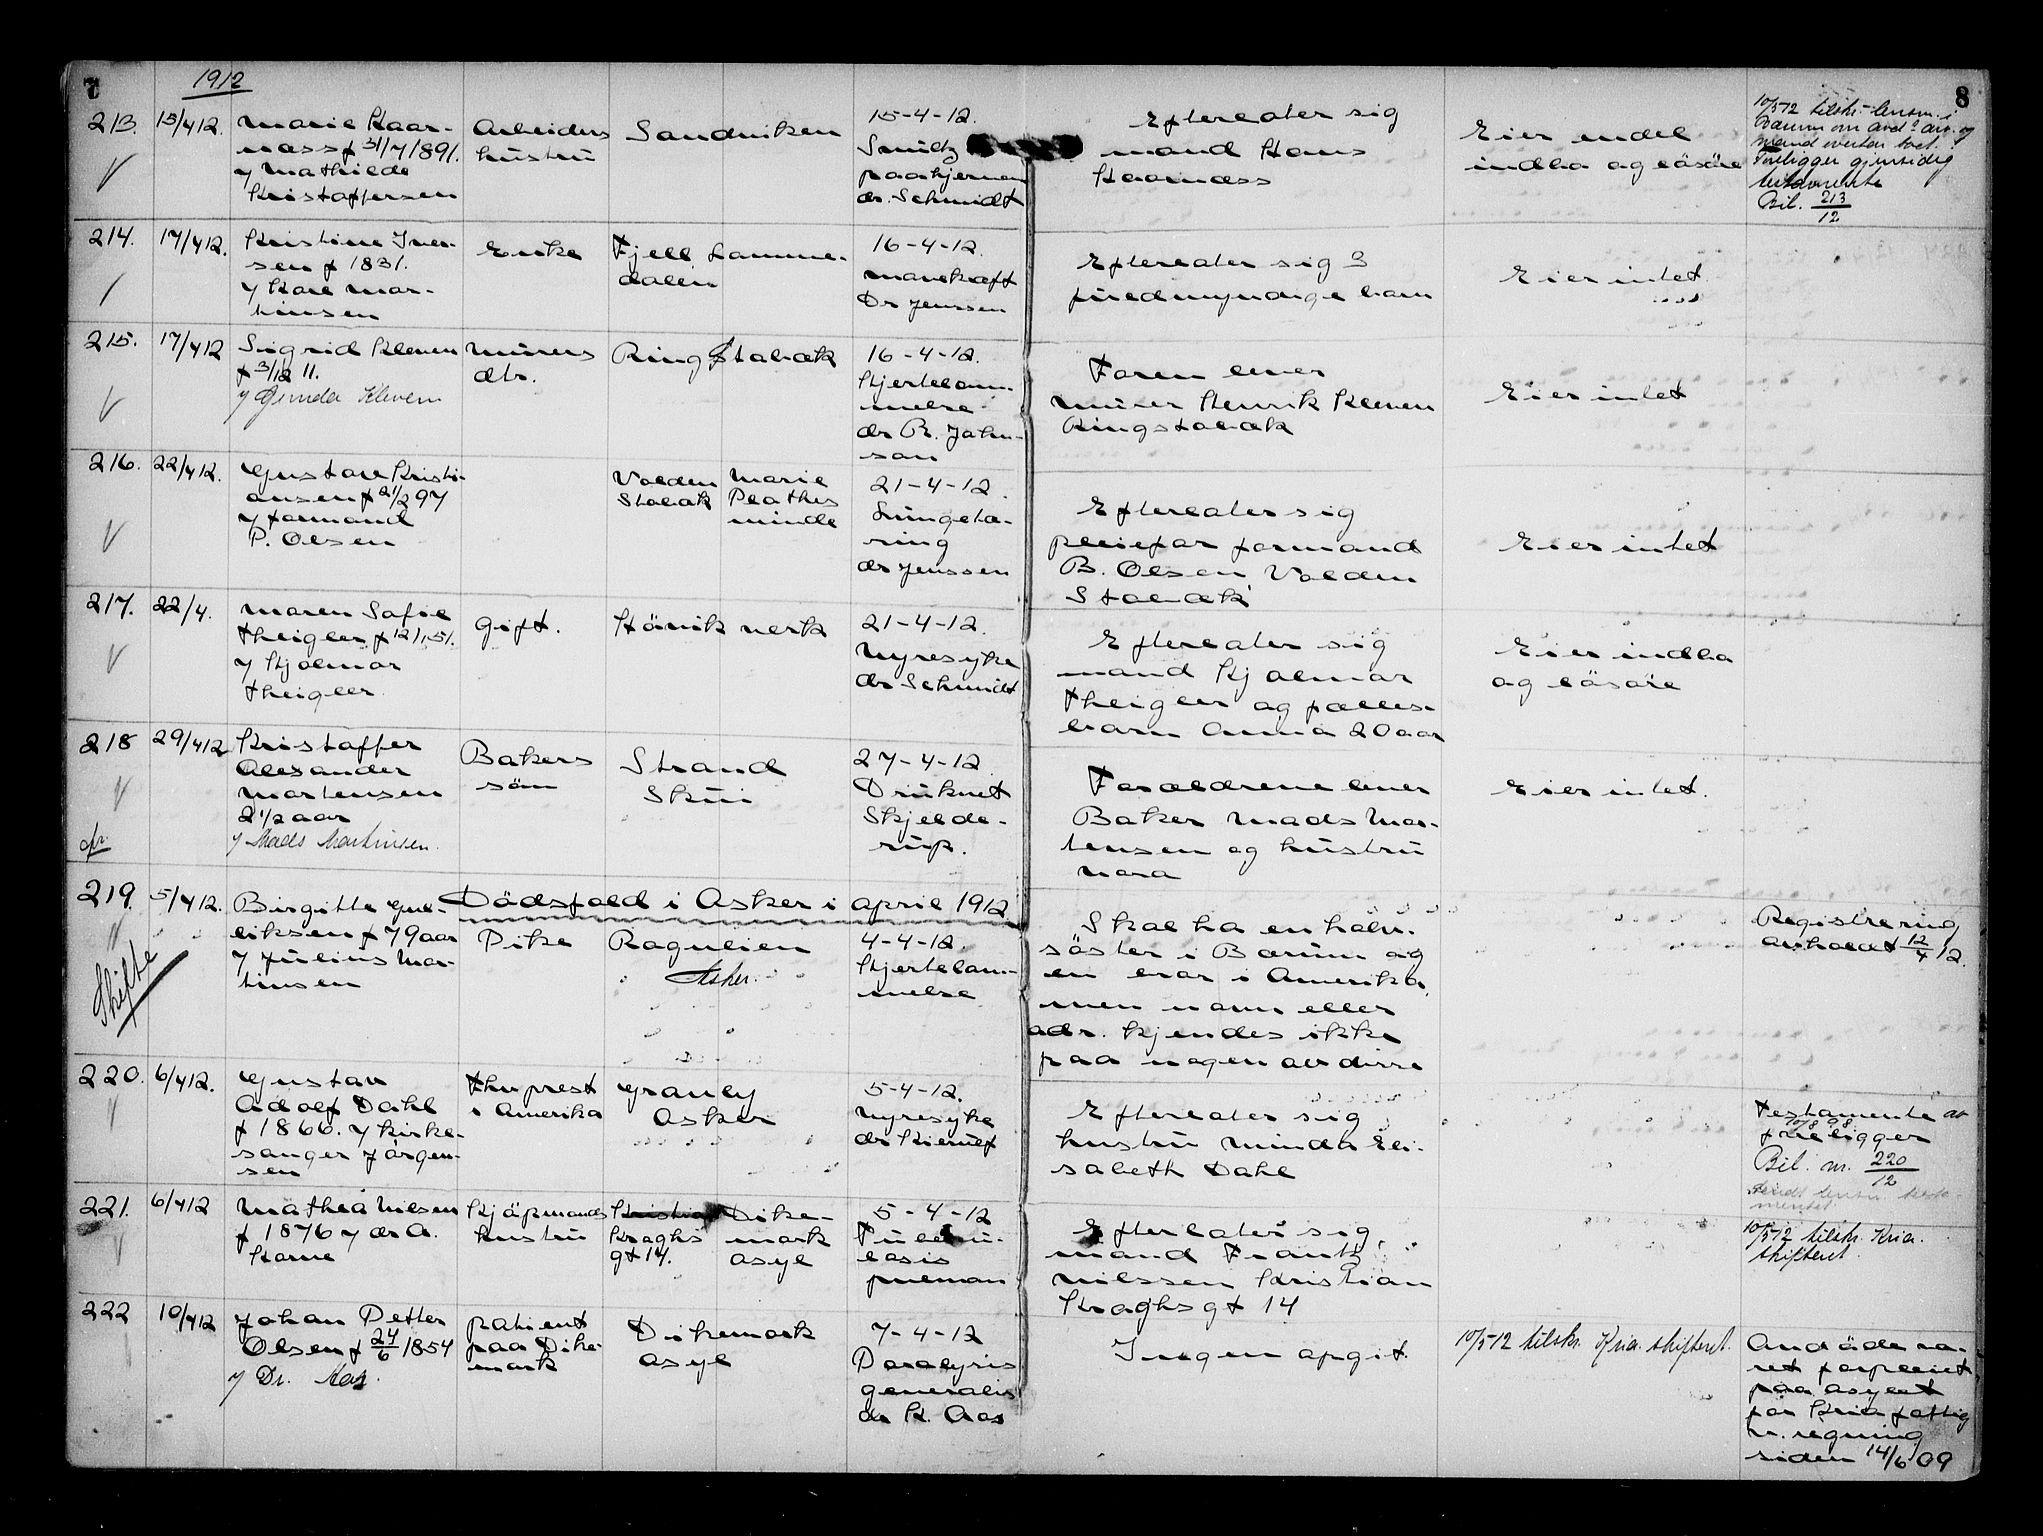 7
8
1912
213. 15/4 12. Marie Haar-
næss f 31/7 1891.
v Mathilde
Kristoffersen
Arbeiders
hustru
Sandviken
15-4-12.
Smitz
paa hjernen
dr. Schmidt
Efterlater sig
mand Hans
Haarnæss
Eier endel
indbo og løsøre
10/5 12 tilskr. lensm. i
Bærum om avd. arv. og
mand overtar boet.
Foreligger gjensidig
testamente
Bil. 213/12
214. 17/4 12. Kristine Iver-
sen f 1831.
v Karl Mar-
tinsen
Enke
Fjell Lomme-
dalen
16-4-12.
Mavekræft
Dr Jenssen
Efterlater sig 3
fuldmyndige barn
Eier intet
215. 17/4 12 Sigrid Kleven
f 3/12 11.
v Gunda Kleven
Murers
dtr.
Ring Stabæk
16-4-12.
Hjertelam-
melse
dr R. John-
son
Foren lever
murer Henrik Kleven
Ringstabæk
Eier intet
216. 22/4 12. Gustav Kristi-
ansen f 21/2 97
v formand
P. Olsen
Volden
Stabæk
Marie
Plathes
minde
21-4-12.
Lungetæ-
ring
dr Jenssen
Efterlater sig
pleiefar formand
B. Olsen, Volden
Stabæk
Eier intet
217. 22/4. Maren Sofie
Theigler f 12/1 51.
v Hjalmar
Theigler
Gift.
Høvik verk
21-4-12.
Nyresyke
dr Schmidt
Efterlater sig
mand Hjalmar
Theigler og fælles-
barn Anna 20 aar
Eier indbo
og løsøre
218 29/4 12 Kristoffer
Alexander
Martensen
2 1/2 aar
v Mads Martinsen.
Bakers
søn
Strand
Skui
27-4-12
Druknet
Skjelde-
rup.
Forældrene lever
Baker Mads Mar-
tensen og hustru
Nora
Eier intet.
Dødsfald i Asker i april 1912
219. 5/4 12. Birgitte Gul-
liksen f 79 aar
v Julius Mar-
tinsen
Skifte
Pike
Rogulien
Asker.
4-4-12.
Hjertelam-
melse
Skal ha en halv-
søster i Bærum og
en bror i Amerika,
men navn eller
adr. kjendes ikke
paa nogen av disse
Registrering
avholdt 12/4 12.
220. 6/4 12. Gustav
Adolf Dahl
f 1866. v kirke-
sanger Jørgen-
sen
Thv prest
i Amerika
Granly
Asker
5-4-12.
Nyresyke
dr Kierulf
Efterlater sig
hustru Minda Eli-
sabeth Dahl
Testamente av
10/8 98
foreligger
Bil. nr. 220/12
sendt lensm. testa-
mentet
221. 6/4 12 Mathea Nilsen
f 1876 v dr A.
Horne
Kjøpmands
hustru
Kristian
Kroghs
gt 14.
Dike-
mark
asyl
5-4-12
Tuberku-
losis
pulmon
Efterlater sig,
mand Frantz
Nilssen Kristian
Kroghs gt 14
10/5 12 tilskr. Kria.
skifteret.
222 10/4 12 Johan Petter
Olsen f 24/6 1854
v Dr. Aas.
patient
paa Dike-
mark
Dikemark
asyl
7-4-12
Paralysis
generalis
dr K. Aas
Ingen opgit.
10/5 12 tilskr. Kria. skifteret.
Avdøde væ-
ret forpleiet
paa asylet
for Kria fattig
v. regning
siden 14/6 09